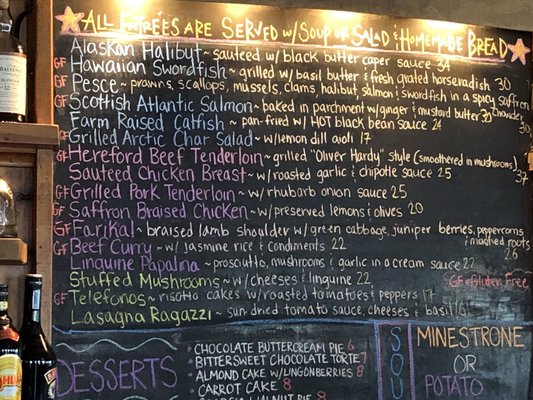 ALL ENTRÉES ARE SERVED w/ SOUP OR SALAD & HOMEMADE BREAD
Alaskan Halibut ~ sautéed w/ black butter caper sauce 34
GF Hawaiian Swordfish ~ grilled w/ basil butter & fresh grated horseradish 30
GF Pesce ~ prawns, scallops, mussels, clams, halibut, salmon & swordfish in a spicy saffron chowder 30
GF Scottish Atlantic Salmon ~ baked in parchment w/ ginger & mustard butter 30
Farm Raised Catfish ~ pan-fried w/ HOT black bean sauce 24
GF Grilled Arctic Char Salad ~ w/ lemon dill aioli 17
GF Hereford Beef Tenderloin ~ grilled "Oliver Hardy" style (smothered in mushrooms) 37
Sautéed Chicken Breast ~ w/ roasted garlic & chipotle sauce 25
GF Grilled Pork Tenderloin ~ w/ rhubarb onion sauce 25
GF Saffron Braised Chicken ~ w/ preserved lemons & olives 20
GF Farikal ~ braised lamb shoulder w/ green cabbage, juniper berries, peppercorns & mashed roots 26
GF Beef Curry ~ w/ Jasmine rice & condiments 22
Linguine Papalina ~ prosciutto, mushrooms & garlic in a cream sauce 22
Stuffed Mushrooms ~ w/ cheeses & linguine 22
GF = Gluten Free
GF Telefonos ~ risotto cakes w/ roasted tomatoes & peppers 17
Lasagna Ragazzi ~ sun-dried tomato sauce, cheeses & basil 16
DESSERTS
CHOCOLATE BUTTERCREAM PIE 6
BITTERSWEET CHOCOLATE TORTE 7
ALMOND CAKE w/ LINGONBERRIES 8
CARROT CAKE 8
WALNUT PIE
SOU
MINESTRONE
OR
POTATO
BALVENIE
12